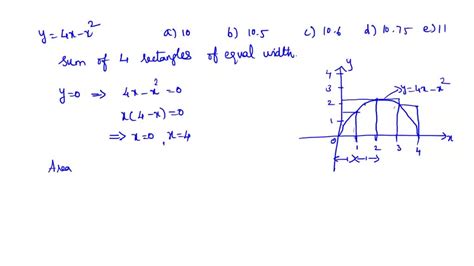 y = 4x - x² a) 10 b) 10.5 c) 10.6 d) 10.75 e) 11
sum of 4 rectangles of equal width.
y=0 ⇒ 4x - x² = 0
x(4-x) = 0
⇒ x=0, x=4
Area
y
4
3
2
1
0
1
2
3
4
x
y=4x-x²
1
1